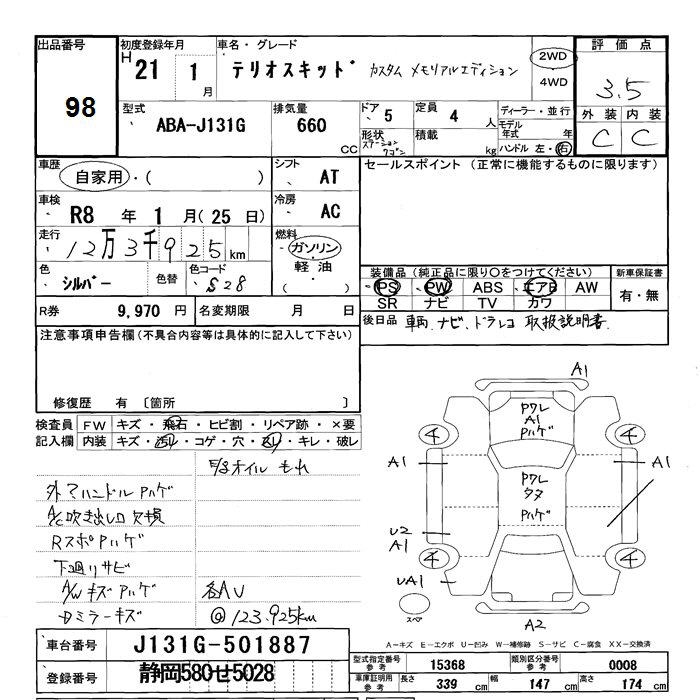 出品番号
98
初度登録年月
H 21 1 月
車名・グレード
テリオスキッド カスタム メモリアルエディション
2WD
4WD
評価点
3.5
外装 内装
C C
型式
ABA-J131G
排気量
660 CC
ドア 5
形状 ステーションワゴン
定員 4 人
積載 kg
ディーラー・並行
モデル年式 年
ハンドル 左・右
車歴
自家用・( )
シフト AT
セールスポイント(正常に機能するものに限ります)
車検
R8 年 1 月(25 日)
冷房 AC
走行
12万3千925km
燃料
ガソリン・
軽油・
( )
色
シルバー
色替
色コード
S28
装備品(純正品に限り○をつけてください)
PS PW ABS エアB AW
SR ナビ TV カワ
新車保証書
有・無
R券 9,970 円
名変期限 月 日
後日品 車両、ナビ、ドラレコ 取扱説明書
注意事項申告欄(不具合内容等は具体的に記入して下さい)
修復歴 有 〔箇所 〕
検査員記入欄
FW キズ・飛石・ヒビ割・リペア跡・×要
内装 キズ・汚れ・コゲ・穴・スレ・キレ・破レ
オイルもれ
外アハンドルAハゲ
A/C吹き出し口欠損
RスポAハゲ
下廻りサビ
A/WキズAハゲ
各AU
Dミラーキズ
@123.925km
A1
Pクレ
A1
Pハゲ
4
4
A1
A1
Pクレ
タヌ
Pハゲ
U2
A1
4
4
UA1
スペア
A2
A-キズ E-エクボ U-凹み W-補修跡 S-サビ C-腐食 XX-交換済
車台番号 J131G-501887
登録番号 静岡580せ5028
型式指定番号参考 15368
類別区分番号参考 0008
車庫証明用参考 長さ 339 cm 幅 147 cm 高さ 174 cm